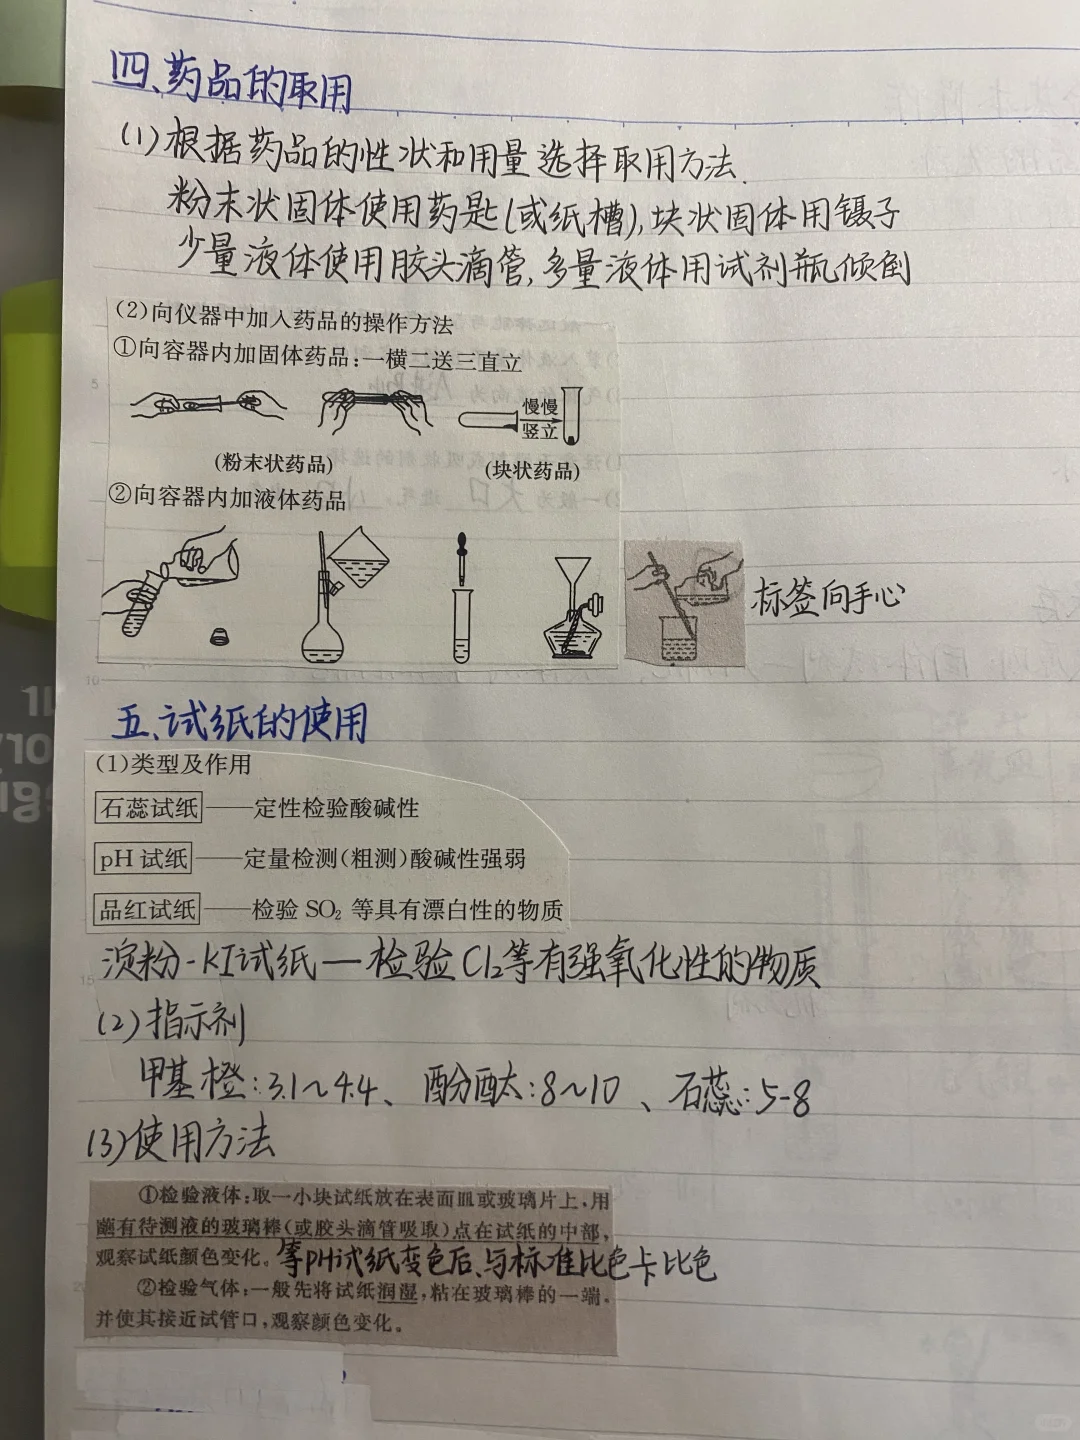 四、药品的取用
(1)根据药品的性状和用量选择取用方法.
粉末状固体使用药匙(或纸槽),块状固体用镊子
少量液体使用胶头滴管,多量液体用试剂瓶倾倒
(2)向仪器中加入药品的操作方法
①向容器内加固体药品:一横二送三直立
慢慢
竖立
(粉末状药品)
(块状药品)
②向容器内加液体药品
标签向手心
五、试纸的使用
(1)类型及作用
石蕊试纸——定性检验酸碱性
pH试纸——定量检测(粗测)酸碱性强弱
品红试纸——检验SO₂等具有漂白性的物质
淀粉-KI试纸—检验Cl₂等有强氧化性的物质
(2)指示剂
甲基橙:3.1~4.4、酚酞:8~10、石蕊:5-8
(3)使用方法
①检验液体:取一小块试纸放在表面皿或玻璃片上,用
蘸有待测液的玻璃棒(或胶头滴管吸取)点在试纸的中部,
观察试纸颜色变化。等PH试纸变色后、与标准比色卡比色
②检验气体:一般先将试纸润湿,粘在玻璃棒的一端,
并使其接近试管口,观察颜色变化。